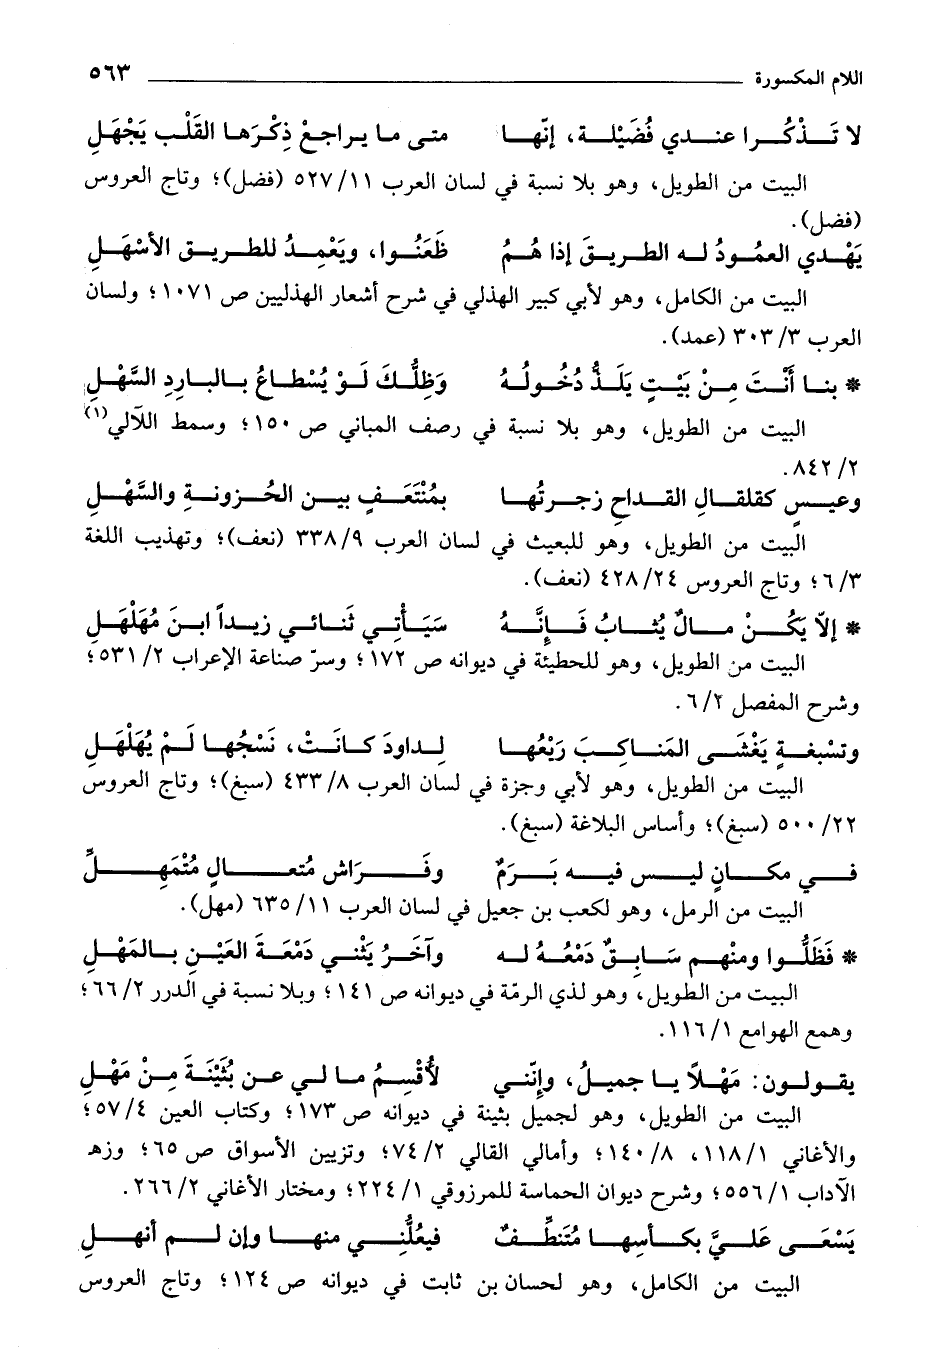 اللام المكسورة ٥٦٣
لا تَذْكُرا عندي فُضَيْلة، إنّها متى ما يراجعْ ذِكْرَها القَلْب يَجْهَلِ
البيت من الطويل، وهو بلا نسبة في لسان العرب ١١/ ٥٢٧ (فضل)؛ وتاج العروس
(فضل).
يَهْدي العمُودُ له الطريقَ إذا هُمُ ظَعَنُوا، ويَعْمِدُ للطريق الأسْهَلِ
البيت من الكامل، وهو لأبي كبير الهذلي في شرح أشعار الهذليين ص ١٠٧١؛ ولسان
العرب ٣/ ٣٠٣ (عمد).
* بنا أَنْتَ مِنْ بَيْتٍ يَلَذُّ دُخُولُهُ وَظِلُّكَ لَوْ يُسْطاعُ بالبارِدِ السَّهْلِ
البيت من الطويل، وهو بلا نسبة في رصف المباني ص ١٥٠؛ وسمط اللآلي(١)
٢/ ٨٤٢.
وعيسٍ كقلقالِ القداحِ زجرتُها بمُنْتَعَفٍ بين الحُزونةِ والسَّهْلِ
البيت من الطويل، وهو للبعيث في لسان العرب ٩/ ٣٣٨ (نعف)؛ وتهذيب اللغة
٣/ ٦؛ وتاج العروس ٢٤/ ٤٢٨ (نعف).
* إلاّ يَكُنْ مالٌ يُثابُ فَإِنَّهُ سَيَأْتِي ثَنائي زيداً ابنَ مُهَلْهَلِ
البيت من الطويل، وهو للحطيئة في ديوانه ص ١٧٢؛ وسرّ صناعة الإعراب ٢/ ٥٣١؛
وشرح المفصل ٢/ ٦.
وتسْبغةٍ يَغْشَى المَناكِبَ رَيْعُها لداودَ كانَتْ، نَسْجُها لَمْ يُهَلْهَلِ
البيت من الطويل، وهو لأبي وجزة في لسان العرب ٨/ ٤٣٣ (سبغ)؛ وتاج العروس
٢٢/ ٥٠٠ (سبغ)؛ وأساس البلاغة (سبغ).
في مكانٍ ليس فيه بَرَمٌ وفَراش مُتعالٍ مُتْمَهِلِّ
البيت من الرمل، وهو لكعب بن جعيل في لسان العرب ١١/ ٦٣٥ (مهل).
* فَظَلُّوا ومنْهم سَابِقٌ دَمْعُهُ له وآخَرُ يَثْني دَمْعَةَ العَيْنِ بالمَهْلِ
البيت من الطويل، وهو لذي الرمّة في ديوانه ص ١٤١؛ وبلا نسبة في الدرر ٢/ ٦٦؛
وهمع الهوامع ١/ ١١٦.
يقولون: مَهْلاً يا جميلُ، وإنّني لأُقْسِمُ ما لي عن بُثَيْنَةَ مِنْ مَهْلِ
البيت من الطويل، وهو لجميل بثينة في ديوانه ص ١٧٣؛ وكتاب العين ٤/ ٥٧؛
والأغاني ١/ ١١٨، ٨/ ١٤٠؛ وأمالي القالي ٢/ ٧٤؛ وتزيين الأسواق ص ٦٥؛ وزهـ
الآداب ١/ ٥٥٦؛ وشرح ديوان الحماسة للمرزوقي ١/ ٢٢٤؛ ومختار الأغاني ٢/ ٢٦٦.
يَسْعَى عَلَيَّ بكأسِها مُتَنطِّفٌ فيعُلُّنِي منها وإن لم أنهلِ
البيت من الكامل، وهو لحسان بن ثابت في ديوانه ص ١٢٤؛ وتاج العروس